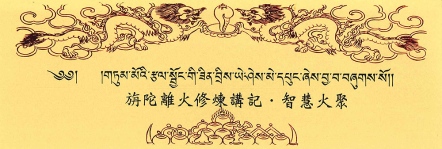 ༄༅། །གཏུམ་མོའི་རྩལ་སྦྱོང་གི་ཟིན་བྲིས་ཡེ་ཤེས་མེ་དཔུང་ཞེས་བྱ་བ་བཞུགས་སོ།།
旃陀離火修煉講記・智慧火聚